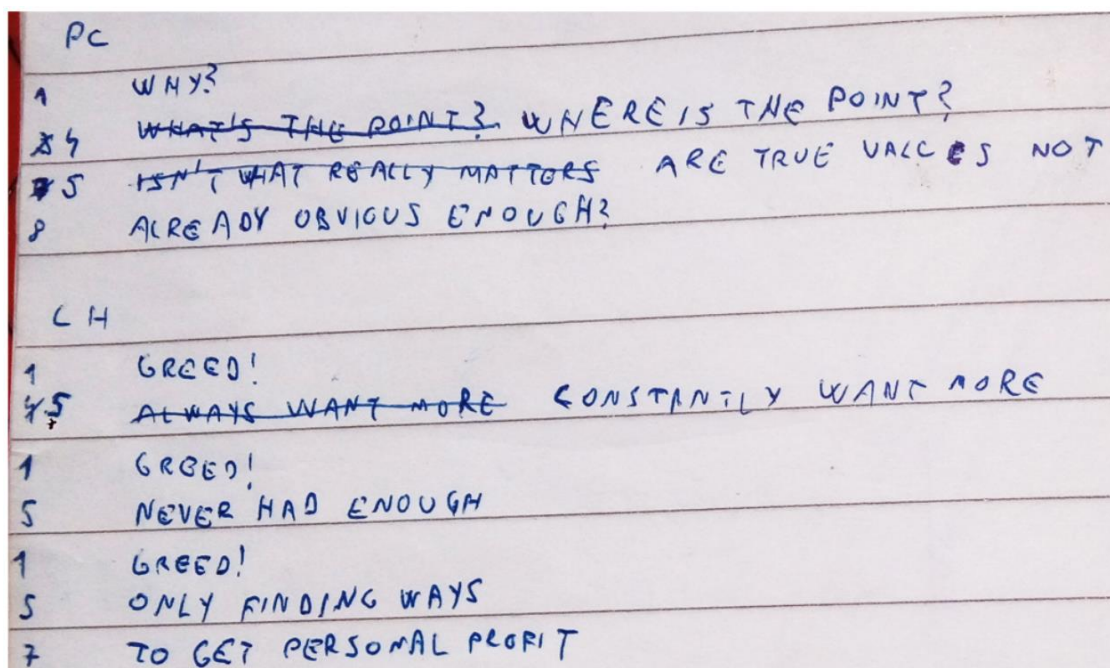 PC
1 WHY?
4 WHAT'S THE POINT? WHERE IS THE POINT?
5 ISN'T WHAT REALLY MATTERS ARE TRUE VALUES NOT
8 ALREADY OBVIOUS ENOUGH?
CH
1 GREED!
4 5 ALWAYS WANT MORE CONSTANTLY WANT MORE
1 GREED!
5 NEVER HAD ENOUGH
1 GREED!
5 ONLY FINDING WAYS
7 TO GET PERSONAL PROFIT